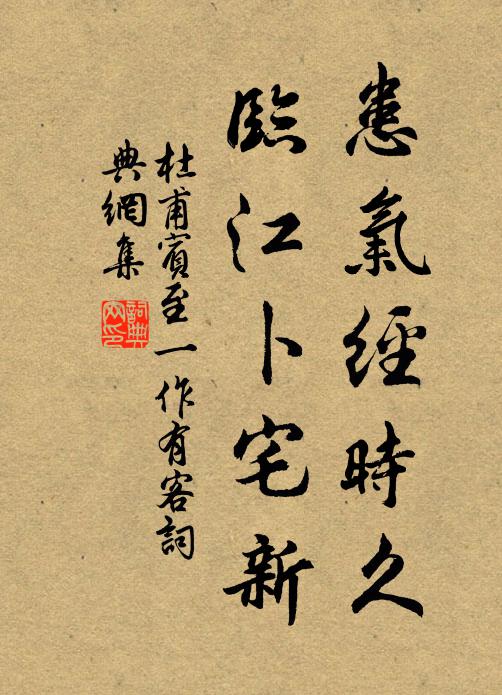 患氣經時久
臨江卜宅新
杜甫賓至一作有客詞
典網集
詞典
网印